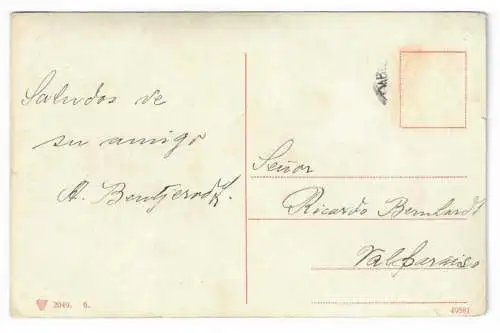 Saludos de
su amigo
A. Bentjerodt.
Señor
Ricardo Bernhardt
Valparaiso
2049. 6.
49561